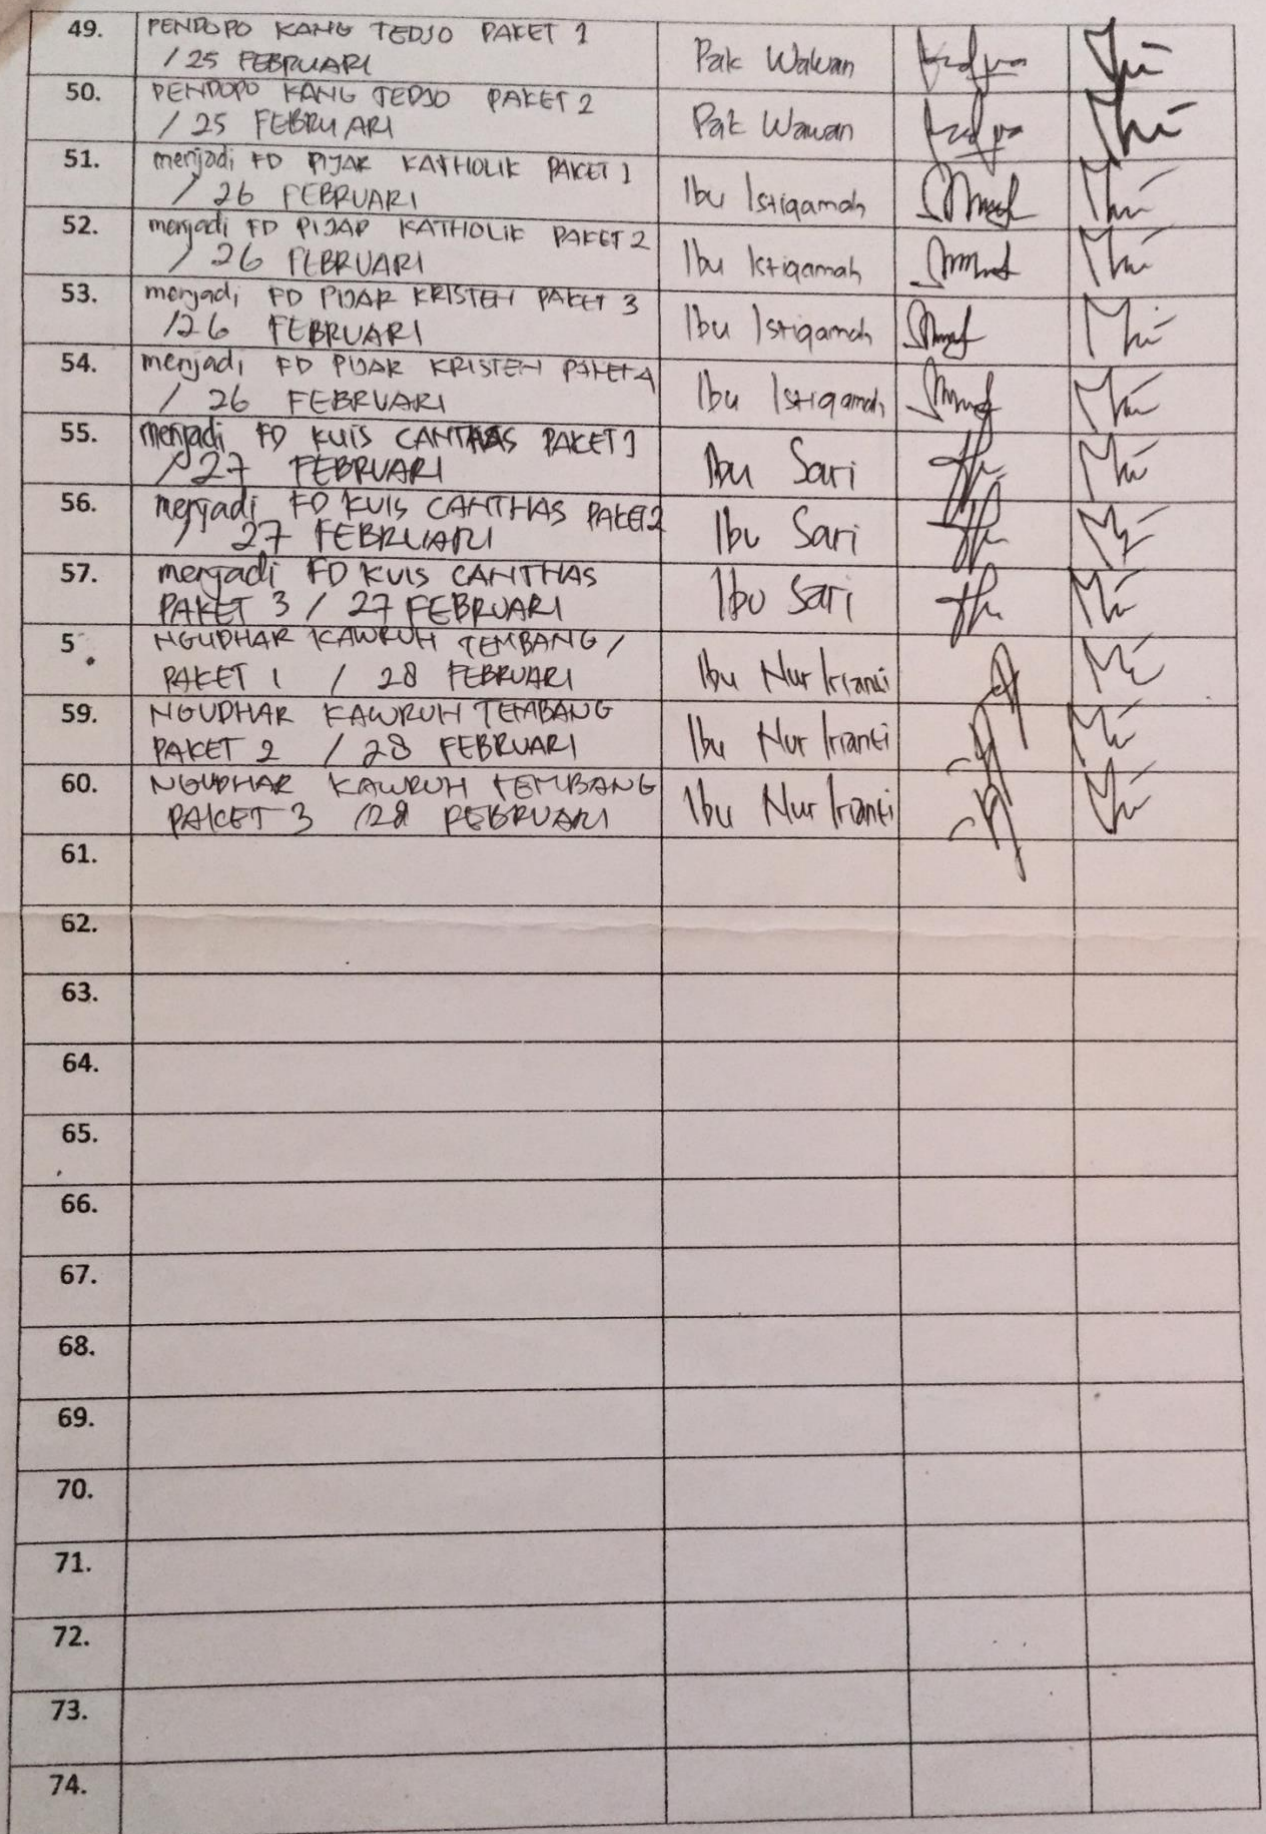 49. PENDOPO KANG TEDJO PAKET 1
/ 25 FEBRUARI Pak Wawan
50. PENDOPO KANG TEDJO PAKET 2
/ 25 FEBRUARI Pak Wawan
51. menjadi FD PIJAR KATHOLIK PAKET 1
/ 26 FEBRUARI Ibu Istiqamah
52. menjadi FD PIJAR KATHOLIK PAKET 2
/ 26 FEBRUARI Ibu Istiqamah
53. menjadi FD PIJAR KRISTEN PAKET 3
/26 FEBRUARI Ibu Istiqamah
54. menjadi FD PIJAR KRISTEN PAKET 4
/ 26 FEBRUARI Ibu Istiqamah
55. menjadi FD KUIS CANTHAS PAKET 1
/ 27 FEBRUARI Ibu Sari
56. menjadi FD KUIS CANTHAS PAKET 2
/ 27 FEBRUARI Ibu Sari
57. menjadi FD KUIS CANTHAS
PAKET 3 / 27 FEBRUARI Ibu Sari
5 . NGUDHAR KAWRUH TEMBANG /
PAKET 1 / 28 FEBRUARI Ibu Nur Irianti
59. NGUDHAR KAWRUH TEMBANG
PAKET 2 / 28 FEBRUARI Ibu Nur Irianti
60. NGUDHAR KAWRUH TEMBANG
PAKET 3 /28 FEBRUARI Ibu Nur Irianti
61.
62.
63.
64.
65.
66.
67.
68.
69.
70.
71.
72.
73.
74.